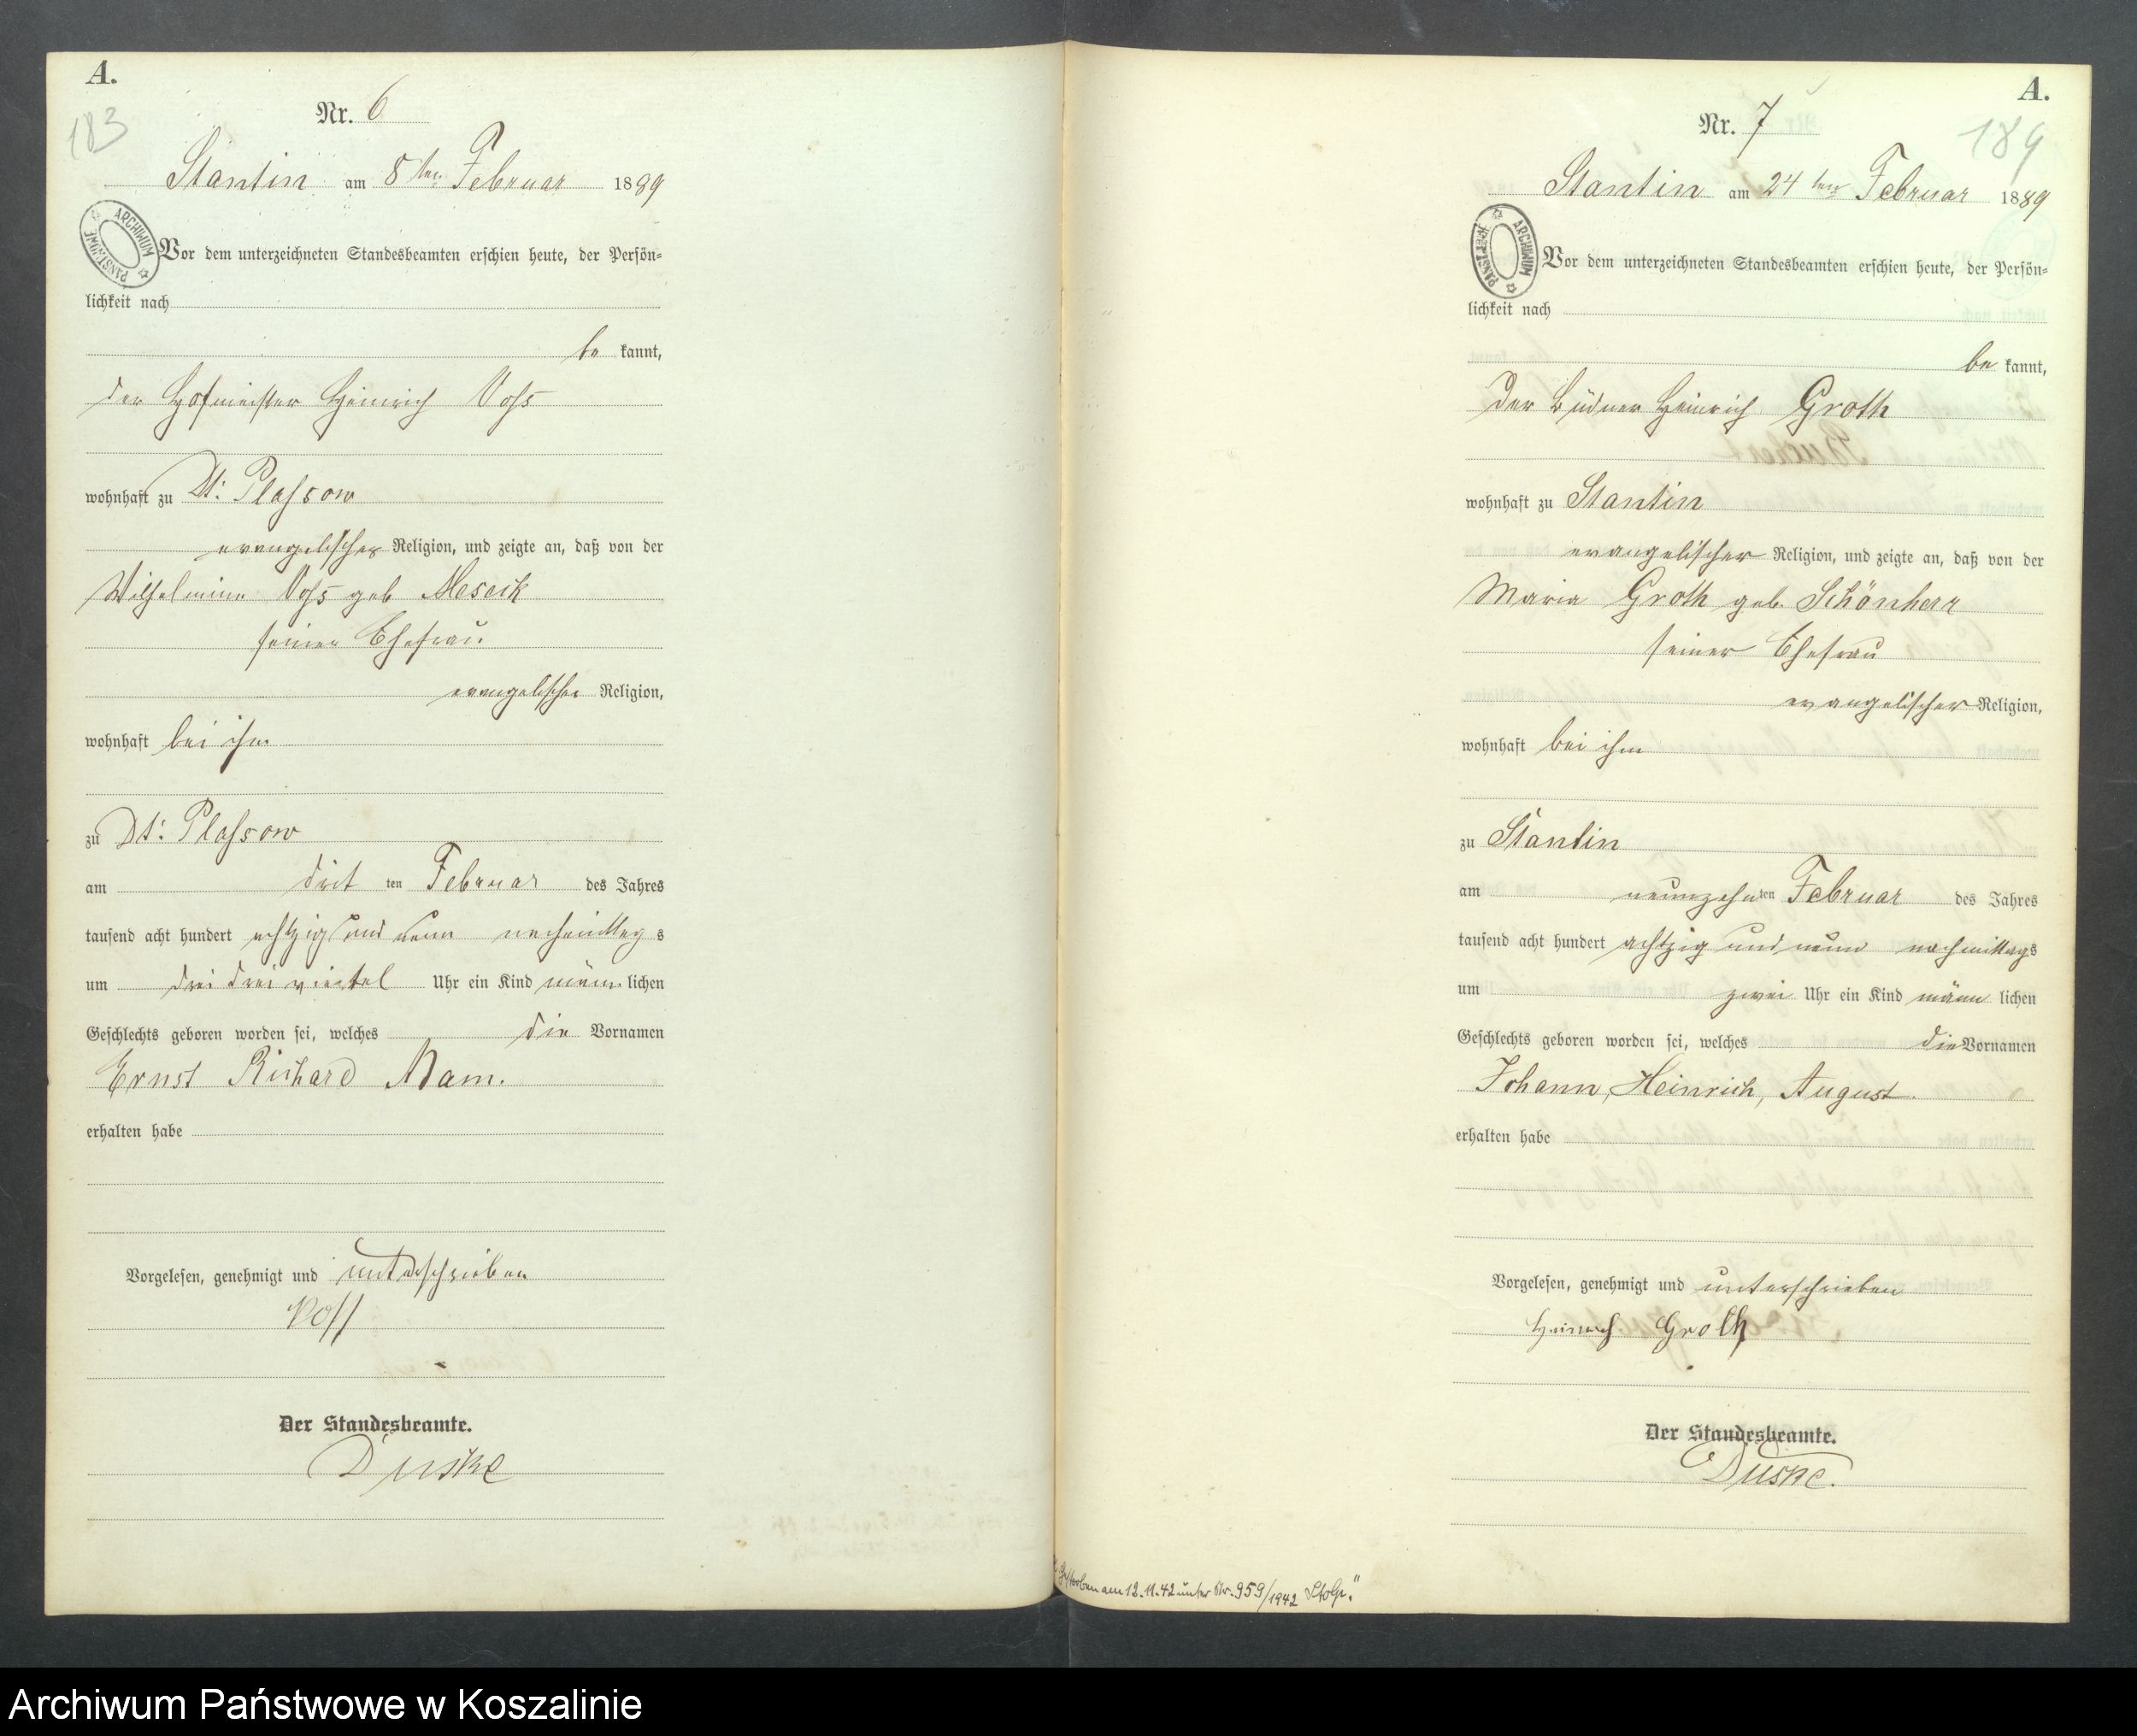 A.
183
Nr. 6
Stantin am 8ten Februar 1889
ARCHIWUM PAŃSTWOWE
Vor dem unterzeichneten Standesbeamten erschien heute, der Persön-
lichkeit nach
be kannt,
der Hofmeister Heinrich Voss
wohnhaft zu Dt: Plassow
evangelischer Religion, und zeigte an, daß von der
Wilhelmine Voss geb Meseck
seiner Ehefrau
evangelischer Religion,
wohnhaft bei ihm
zu Dt: Plassow
am drit ten Februar des Jahres
tausend acht hundert achtzig und neun nachmittag s
um drei drei viertel Uhr ein Kind männ lichen
Geschlechts geboren worden sei, welches die Vornamen
Ernst Richard
erhalten habe
Vorgelesen, genehmigt und unterschrieben
Voss
Der Standesbeamte.
Duske
A.
189
Nr. 7
Stantin am 24ten Februar 1889
ARCHIWUM PAŃSTWOWE
Vor dem unterzeichneten Standesbeamten erschien heute, der Persön-
lichkeit nach
be kannt,
der Büdner Heinrich Groth
wohnhaft zu Stantin
evangelischer Religion, und zeigte an, daß von der
Maria Groth geb. Schönherr
seiner Ehefrau
evangelischer Religion,
wohnhaft bei ihm
zu Stantin
am neunzehnten Februar des Jahres
tausend acht hundert achtzig und neun nachmittags
um zwei Uhr ein Kind männ lichen
Geschlechts geboren worden sei, welches die Vornamen
Johann, Heinrich, August.
erhalten habe
Vorgelesen, genehmigt und unterschrieben
Heinrich Groth
Der Standesbeamte.
Duske.
Gestorben am 12.11.42 unter Nr. 959/1942 Stolp."
Archiwum Państwowe w Koszalinie